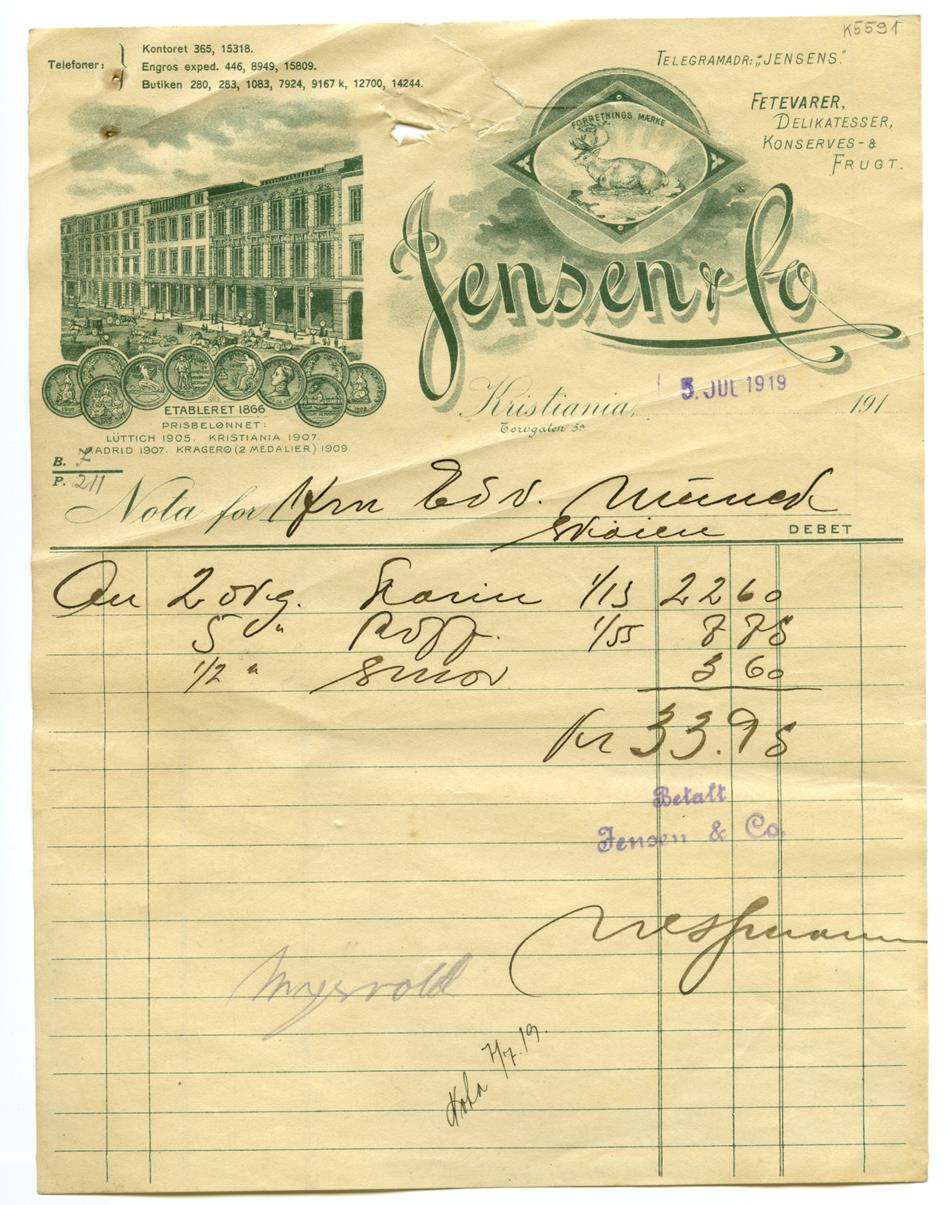 K5591
Telefoner:
Kontoret 365, 15318.
Engros exped. 446, 8949, 15809.
Butiken 280, 283, 1083, 7924, 9167 k, 12700, 14244.
TELEGRAMADR: „JENSENS."
FETEVARER,
DELIKATESSER,
KONSERVES- &
FRUGT.
FORRETNINGS MÆRKE
Jensen & Co
ETABLERET 1866
PRISBELØNNET:
LÜTTICH 1905. KRISTIANIA 1907.
MADRID 1907. KRAGERØ (2 MEDALIER) 1909.
Kristiania, 5. JUL 1919 191
Torvgaten 5a
B. 7
P. 211
Nota for Hrn Edv. Munch
Skøien DEBET
2 1/13 22 60
5 " 1/55 7 75
1/2 " Smør 3 60
Kr 33.95
Betalt
Jensen & Co.
Myrvold
7/7.19.